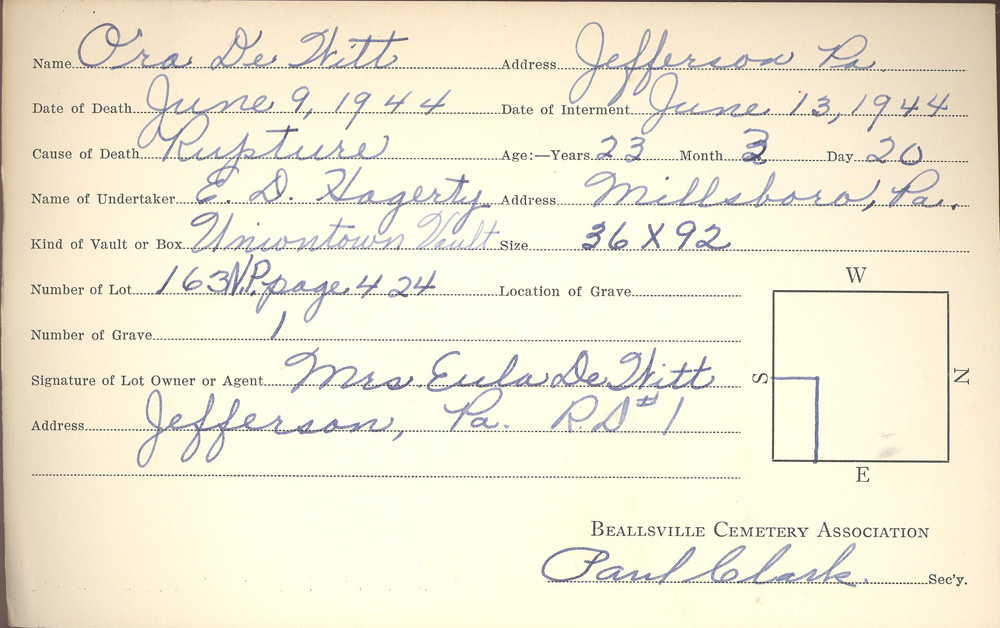 Name Ora De Witt Address Jefferson Pa.
Date of Death June 9, 1944 Date of Interment June 13, 1944
Cause of Death Rupture Age:—Years 23 Month 3 Day 20
Name of Undertaker E. D. Hagerty Address Millsboro, Pa.
Kind of Vault or Box Uniontown Vault Size 36 X 92
Number of Lot 163 N.P. page 424 Location of Grave
Number of Grave 1
Signature of Lot Owner or Agent Mrs Eula De Witt
Address Jefferson, Pa. R.D #1
W
S
N
E
BEALLSVILLE CEMETERY ASSOCIATION
Paul Clark. Sec'y.